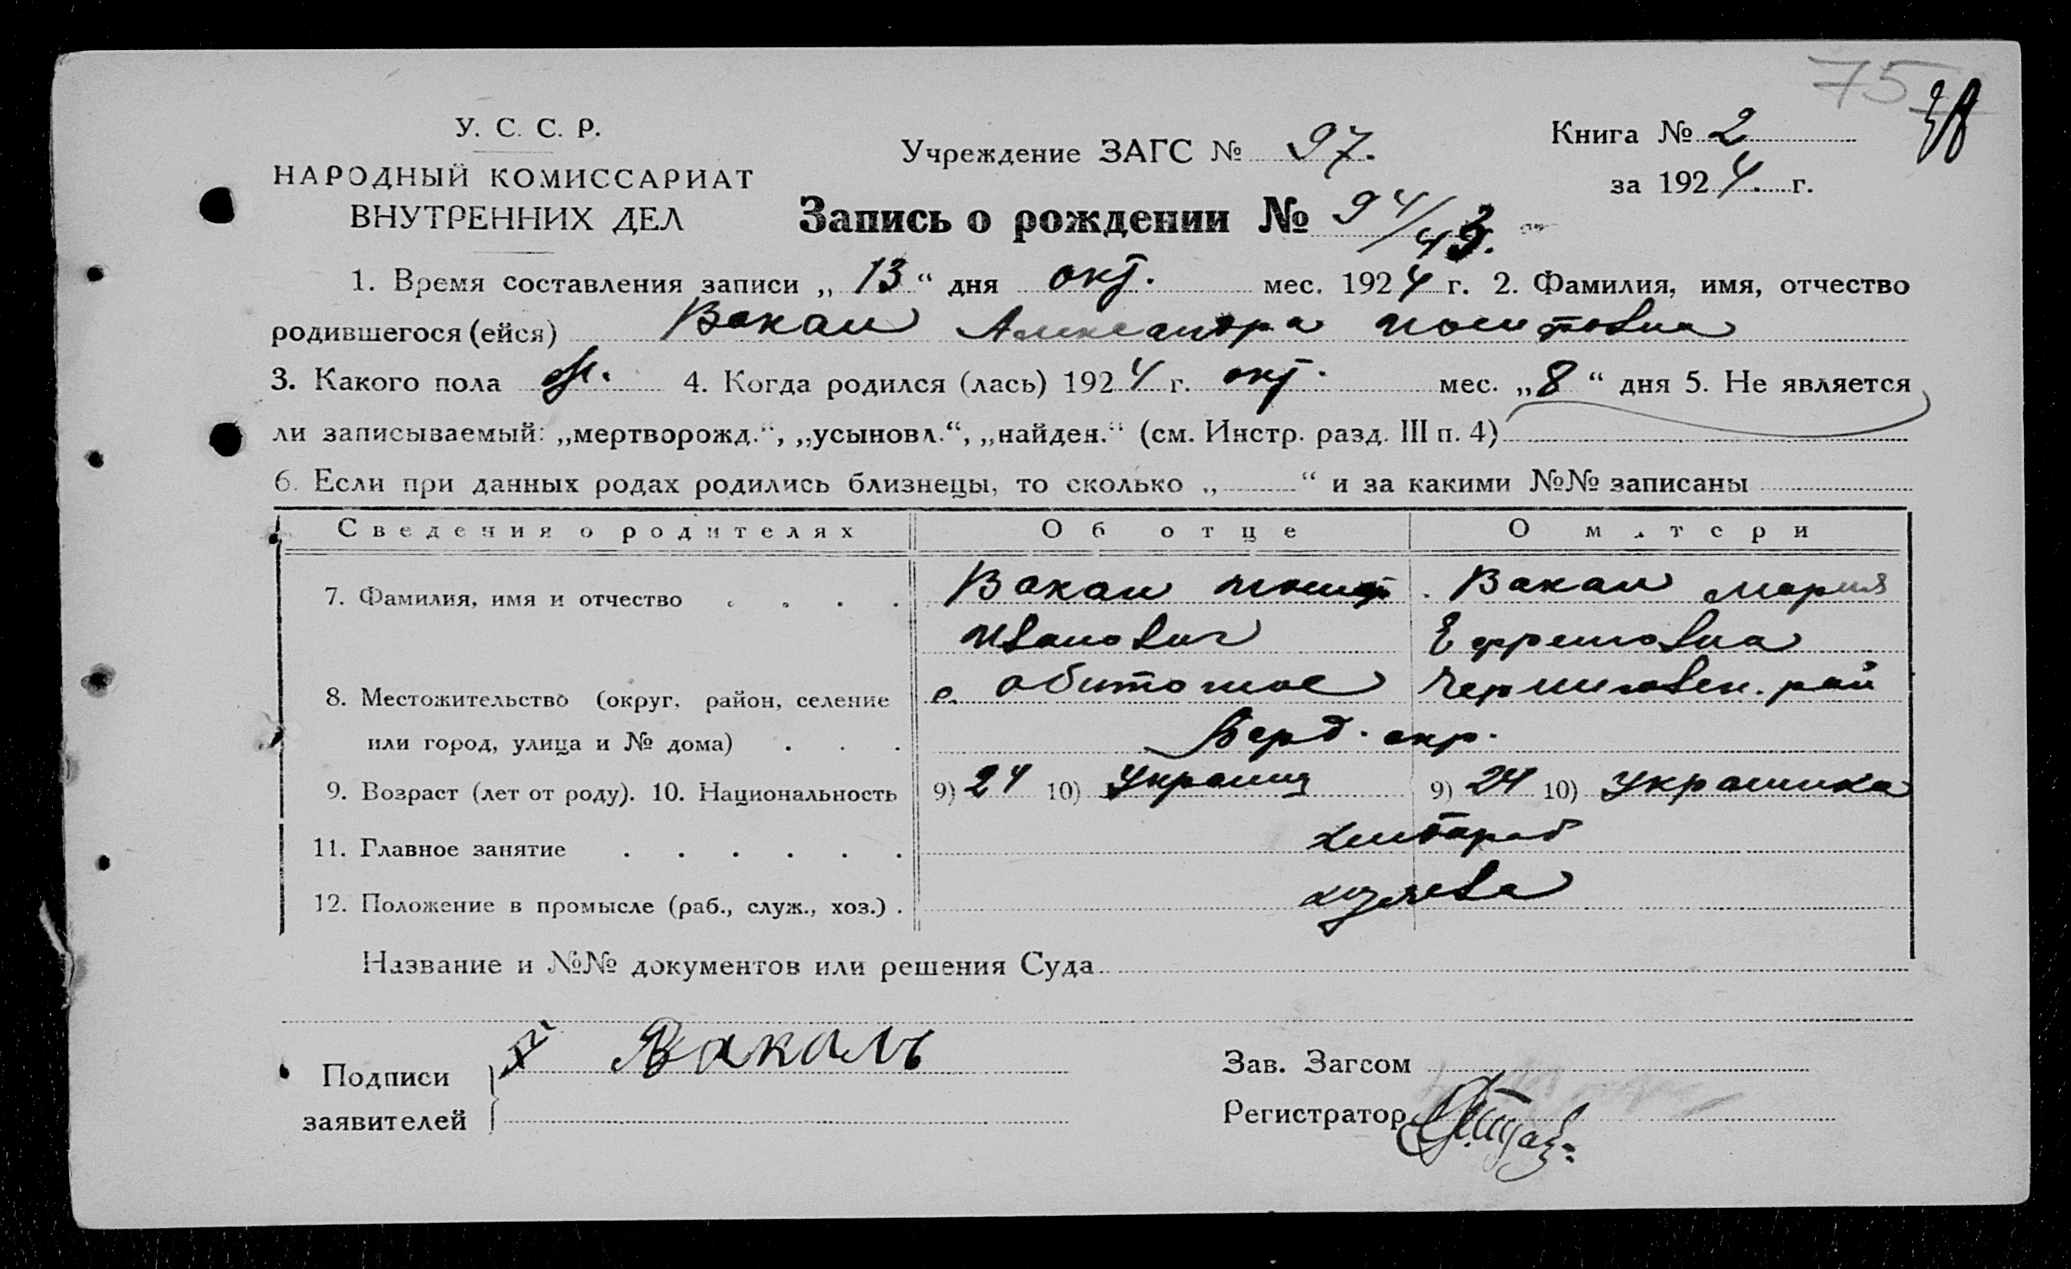 75
38
У. С. С. Р.
НАРОДНЫЙ КОМИССАРИАТ
ВНУТРЕННИХ ДЕЛ
Учреждение ЗАГС № 97.
Книга № 2
за 1924. г.
Запись о рождении № 94/43.
1. Время составления записи „ 13 “ дня окт. мес. 1924 г. 2. Фамилия, имя, отчество
родившегося (ейся) Вакал Александра
3. Какого пола 4. Когда родился (лась) 1924 г. окт. мес. „8 “ дня 5. Не является
ли записываемый: „мертворожд.“, „усыновл.“, „найден.“ (см. Инстр. разд. III п. 4)
6. Если при данных родах родились близнецы, то сколько „ “ и за какими №№ записаны
Сведения о родителях Об отце О матери
7. Фамилия, имя и отчество . . . . Вакал Вакал Мария
Иванович Ефремовна
8. Местожительство (округ, район, селение с. Обиточное Черниговск. рай
или город, улица и № дома) . . . Берд. окр.
9. Возраст (лет от роду). 10. Национальность 9) 24 10) Украинц 9) 24 10) Украинка
11. Главное занятие . . . . . . хлебороб
12. Положение в промысле (раб., служ., хоз.) . хозяева
Название и №№ документов или решения Суда
Подписи заявителей Вакаль
Зав. Загсом
Регистратор